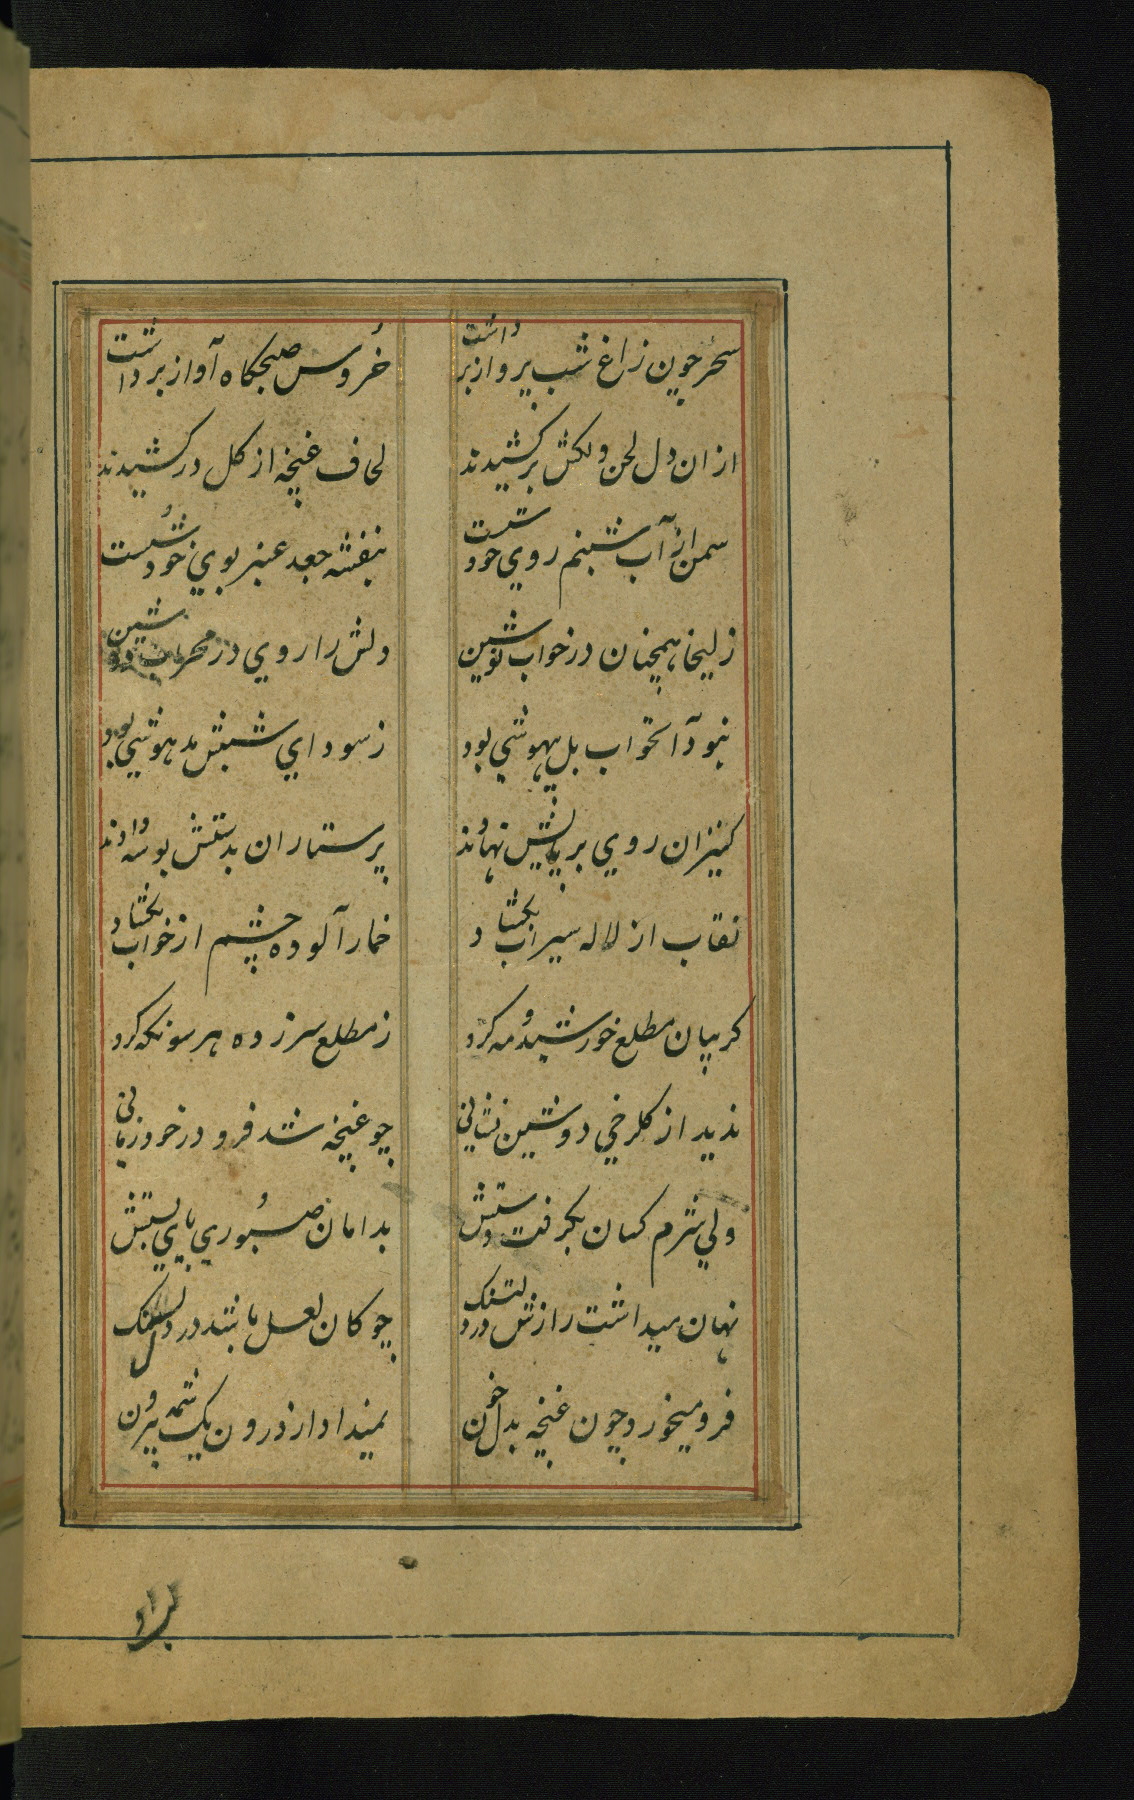 سحر چون زاغ شب پرواز برداشت خروس صبحکاه آواز برداشت
ازان دل لحن دلکش برکشیدند لحاف غنچه از کل درکشیدند
سمن از آب شبنم روي خود شست بنفشه جعد عنبر بوي خود شست
زلیخا همچنان در خواب نوشین دلش را روي در محراب دوشین
نبود آنخواب بل بیهوشي بود ز سوداي شبش مدهوشي بود
کنیزان روي بر پایش نهادند پرستاران بدستش بوسه دادند
نقاب از لاله سیراب بکشاد خمار آلوده چشم از خواب بکشاد
کریبان مطلع خورشید و مه کرد ز مطلع سر زده هر سو نکه کرد
ندید از کلرخي دوشین نشاني چو غنچه شد فرو در خود زماني
ولي شرم کسان بکرفت دستش بدامان صبوري پاي بستش
نهان میداشت رازش در دل تنک چو کان لعل باشد در دل سنک
فرو میخورد چون غنچه بدل خون نمیداد از درون یک شمه بیرون